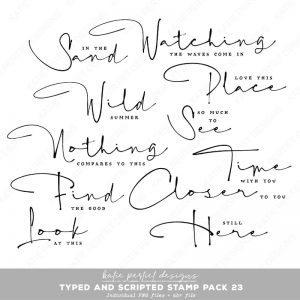 IN THE
Sand
Watching
THE WAVES COME IN
LOVE THIS
Place
Wild
SUMMER
SO MUCH TO
See
Nothing
COMPARES TO THIS
Time
WITH YOU
Find
THE GOOD
Closer
TO YOU
Look
AT THIS
STILL
Here
katie pertiet designs
TYPED AND SCRIPTED STAMP PACK 23
Individual PNG files + abr file